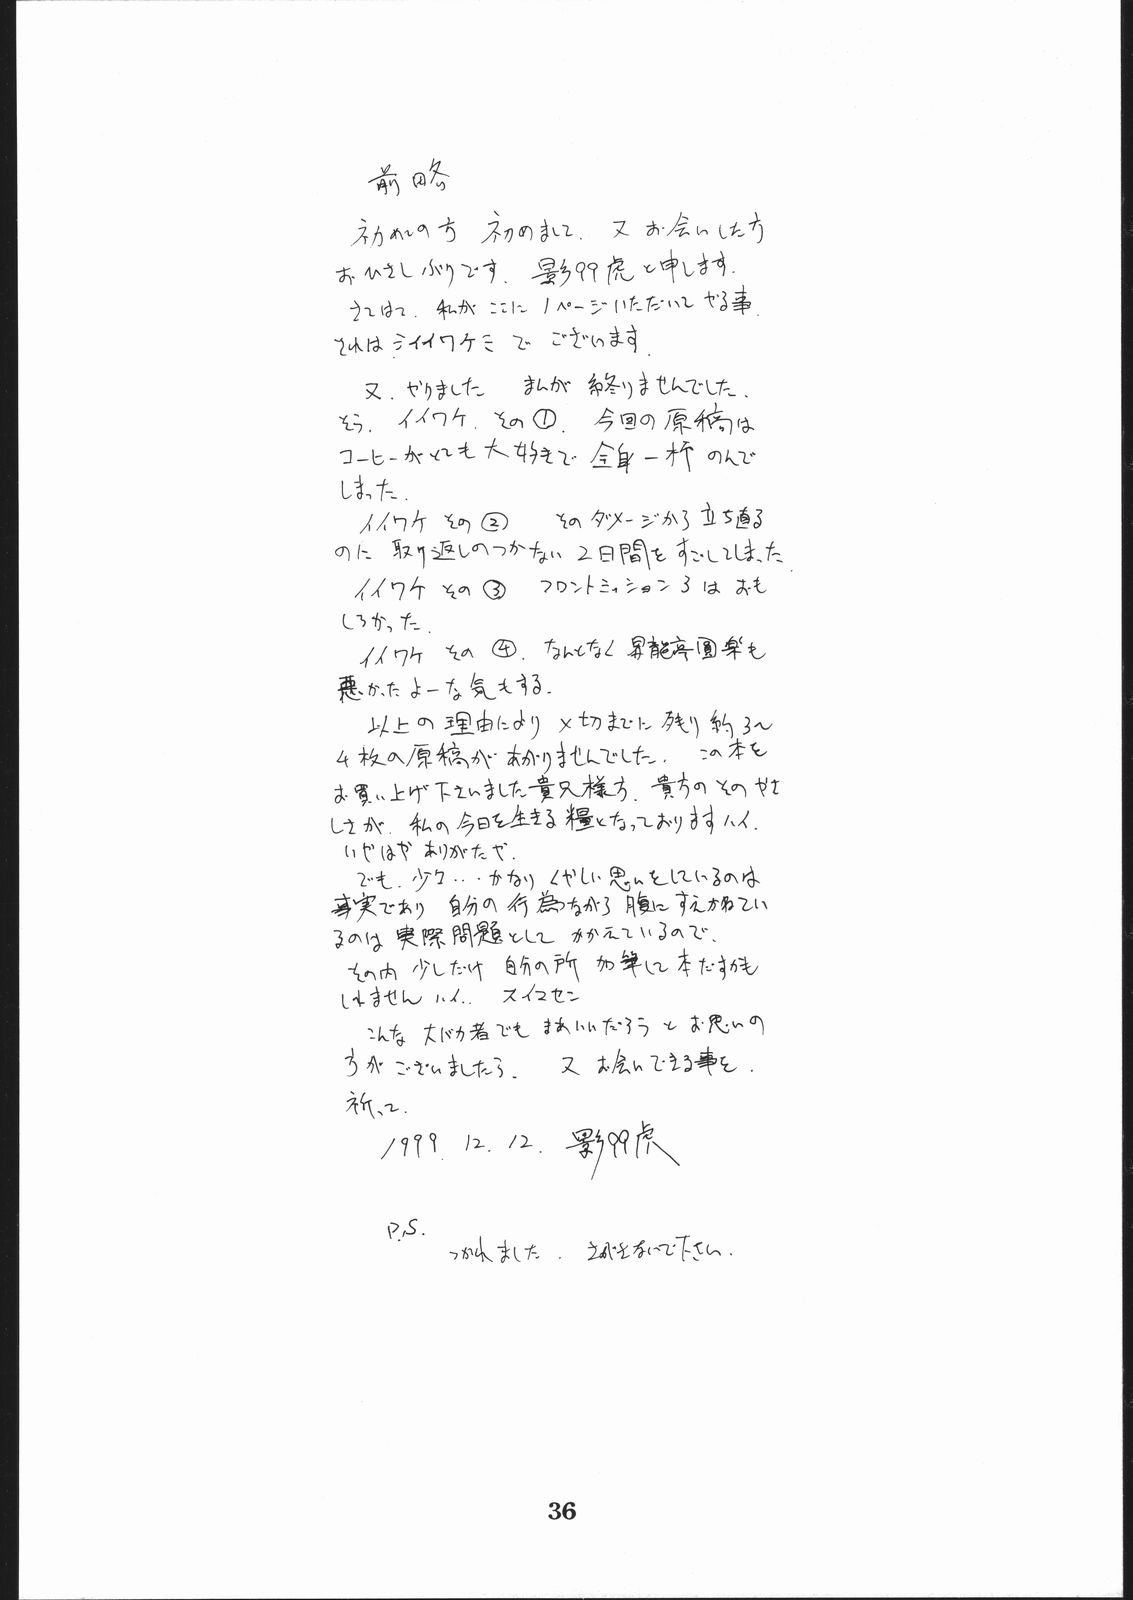 前略
初めての方 初めまして、又お会いした方
おひさしぶりです。影99虎と申します。
さてはて、私がここに1ページいただいてやる事、
それはミイイワケミでございます。
又、やりました まんが終りませんでした、
そう、イイワケ、その①、今回の原稿は
コーヒーがとても大好きで全身一杯のんで
しまった。
イイワケ その② そのダメージから立ち直る
のに取り返しのつかない2日間をすごしてしまった。
イイワケ その③ フロントミッション3はおも
しろかった。
イイワケ その④、なんとなく昇龍亭圓楽も
悪かったよーな気もする。
以上の理由により〆切までに残り約3〜
4枚の原稿があがりませんでした。この本を
お買い上げ下さいました貴兄様方、貴方のそのやさ
しさが、私の今日を生きる糧となっておりますハイ、
いやはやありがたや、
でも、少々・・・かなりくやしい思いをしているのは
事実であり 自分の行為ながら腹にすえかねてい
るのは実際問題としてかかえているので、
その内 少しだけ 自分の所 加筆して本だすかも
しれませんハイ.. スイマセン
こんな大バカ者でもまあいいだろうとお思いの
方がございましたら、又お会いできる事を、
祈って。
1999. 12. 12. 影99虎
P.S.
つかれました。さがさないで下さい。
36